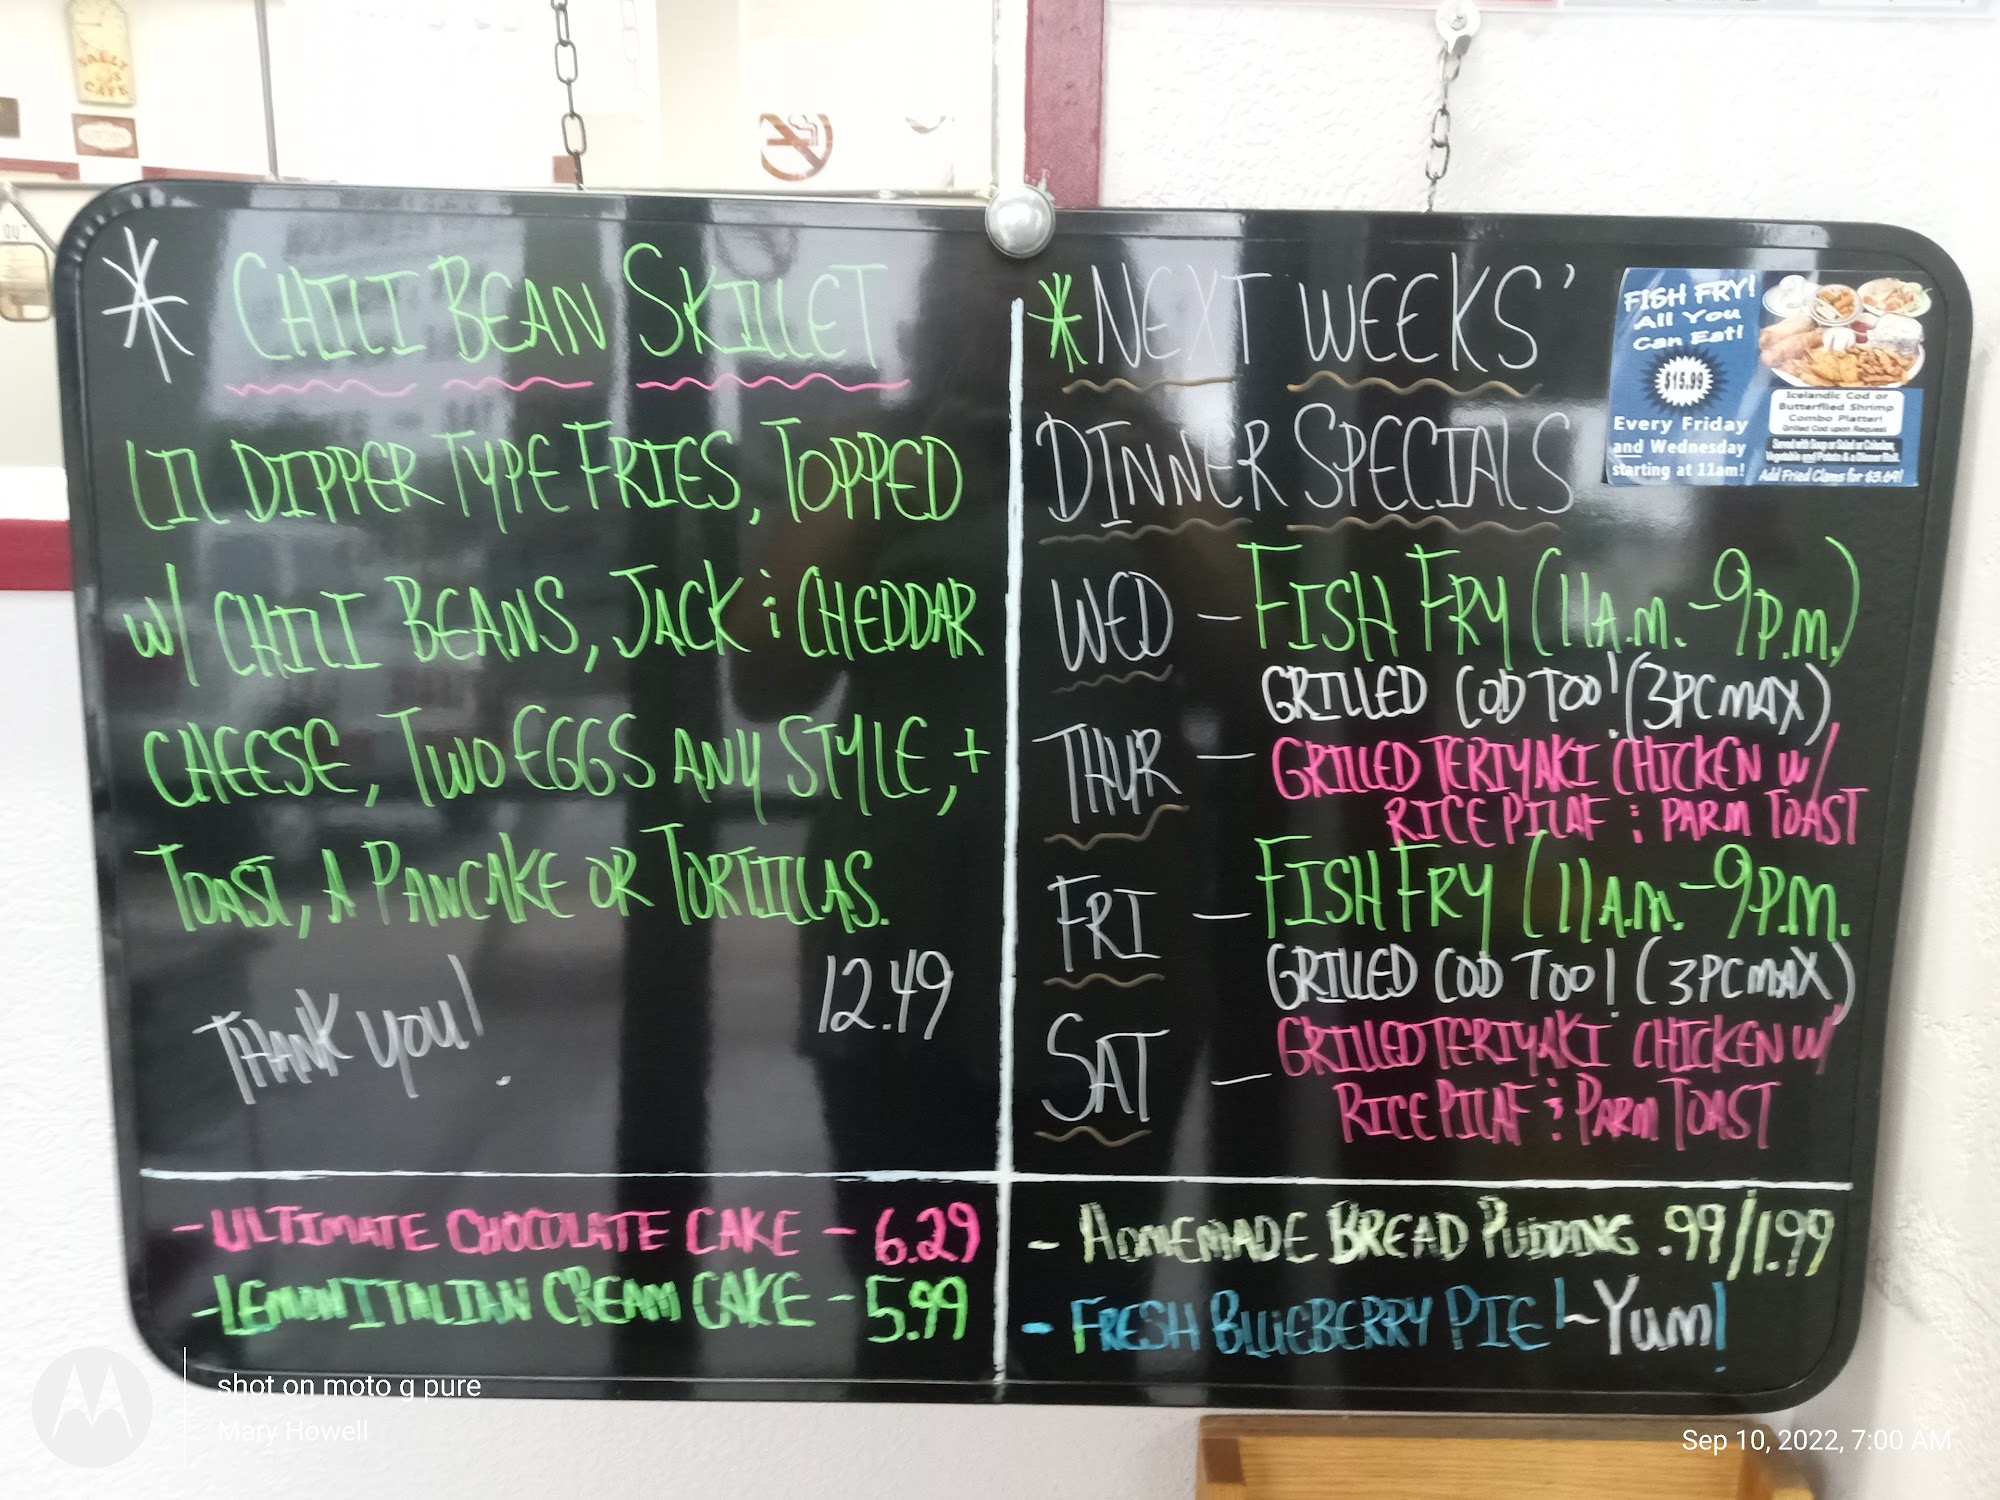 SALLY
S
CAFE
OUT
* CHILI BEAN SKILLET
LIL DIPPER TYPE FRIES, TOPPED
W/ CHILI BEANS, JACK & CHEDDAR
CHEESE, TWO EGGS ANY STYLE, +
TOAST, A PANCAKE OR TORTILLAS.
12.49
THANK YOU!
* NEXT WEEKS'
DINNER SPECIALS
FISH FRY!
All You
Can Eat!
$15.99
Every Friday
and Wednesday
starting at 11am!
Icelandic Cod or
Butterflied Shrimp
Combo Platter!
Grilled Cod upon Request
Served with Soup or Salad or Coleslaw
Vegetable and Potato & a Dinner Roll
Add Fried Clams for $3.69!
WED - FISH FRY (11A.M.-9P.M.)
GRILLED COD TOO! (3PC MAX)
THUR - GRILLED TERIYAKI CHICKEN W/
RICE PILAF & PARM TOAST
FRI - FISH FRY (11A.M.-9P.M.
GRILLED COD TOO! (3PC MAX)
SAT - GRILLED TERIYAKI CHICKEN W/
RICE PILAF & PARM TOAST
- ULTIMATE CHOCOLATE CAKE - 6.29
- LEMON ITALIAN CREAM CAKE - 5.99
- HOMEMADE BREAD PUDDING .99/1.99
- FRESH BLUEBERRY PIE! - YUM!
shot on moto g pure
Mary Howell
Sep 10, 2022, 7:00 AM